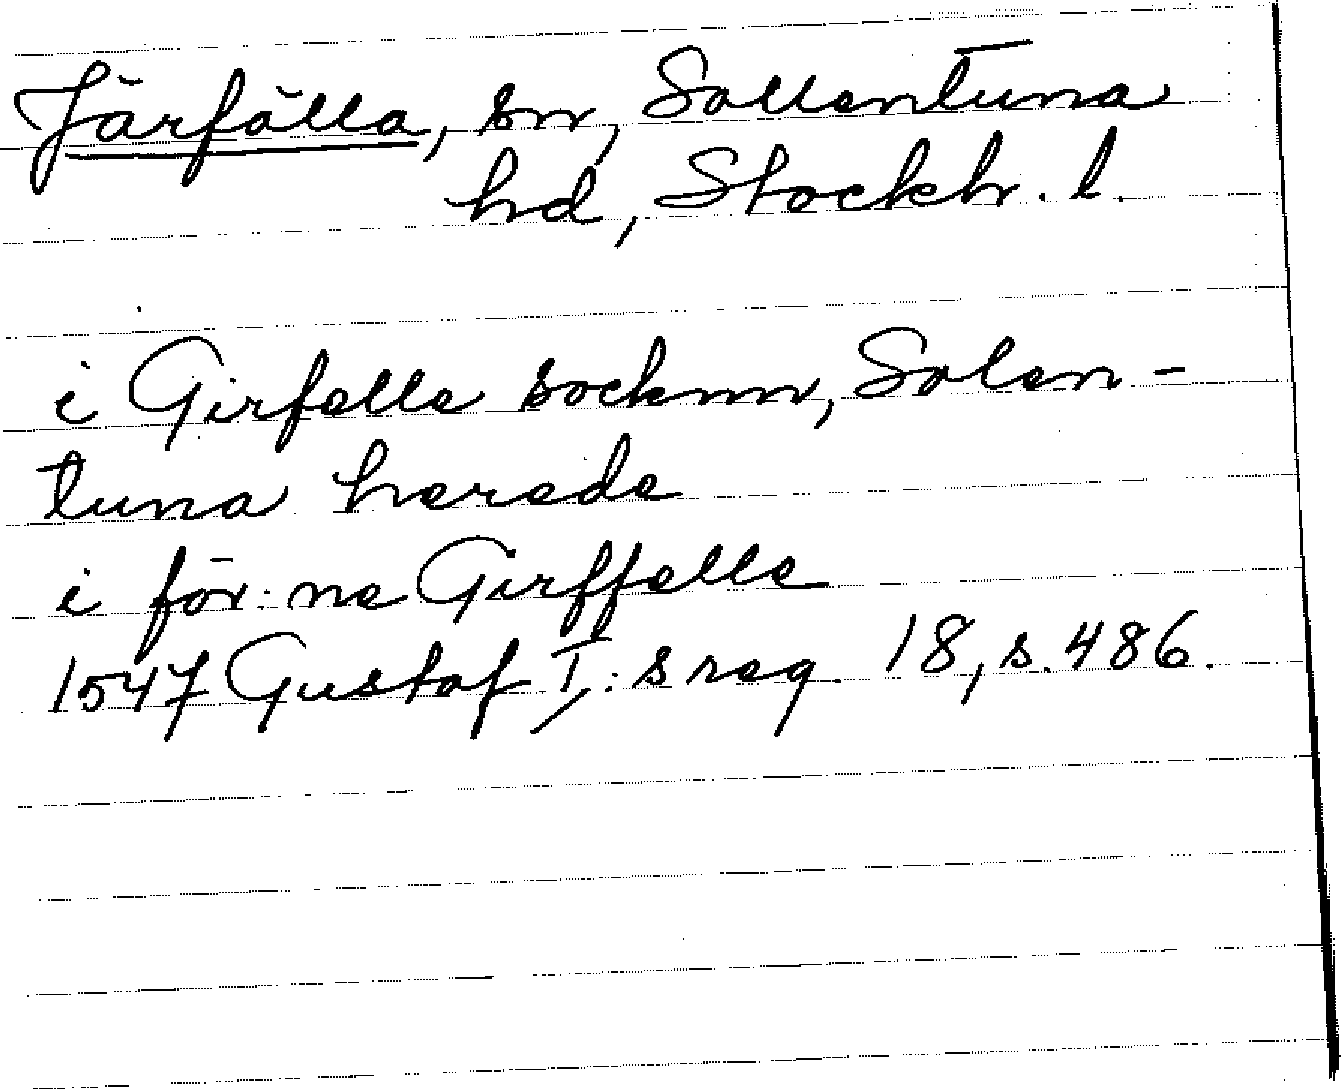 Järfälla, sn, Sollentuna
hd, Stockh. l.
i Girfelle socknn, Solen-
tuna herede
i för:ne Girffelle
1547 Gustaf I:s reg. 18, s. 486.